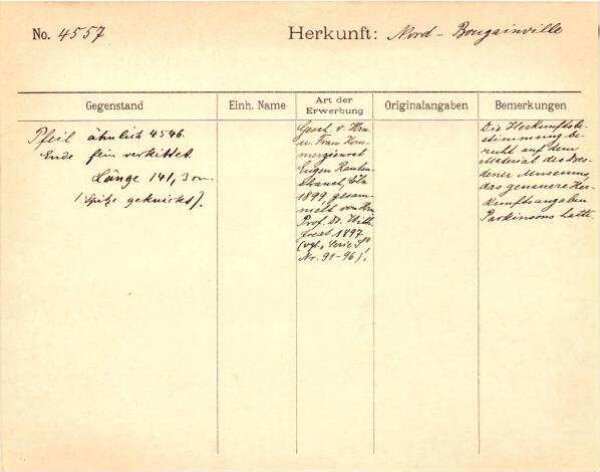 No. 4557 Herkunft: Nord-Bougainville
Gegenstand
Einh. Name
Art der
Erwerbung
Originalangaben
Bemerkungen
Pfeil ähnlich 4546.
Ende fein verkittet.
Länge 141,3 cm.
(Spitze geknickt).
Gesch. v. Hrn
u. Frau Kom-
merzienrat
Eugen Rauten-
strauch, Cöln
1899, gesam-
melt von Hrn
Prof. Dr.
1897
(vgl. Serie
Nr. 91-96).
Die Herkunftsbe-
stimmung be-
ruht auf dem
Material des Dres-
dener Museums,
das genauere Her-
kunftsangaben
Parkinsons hatte.